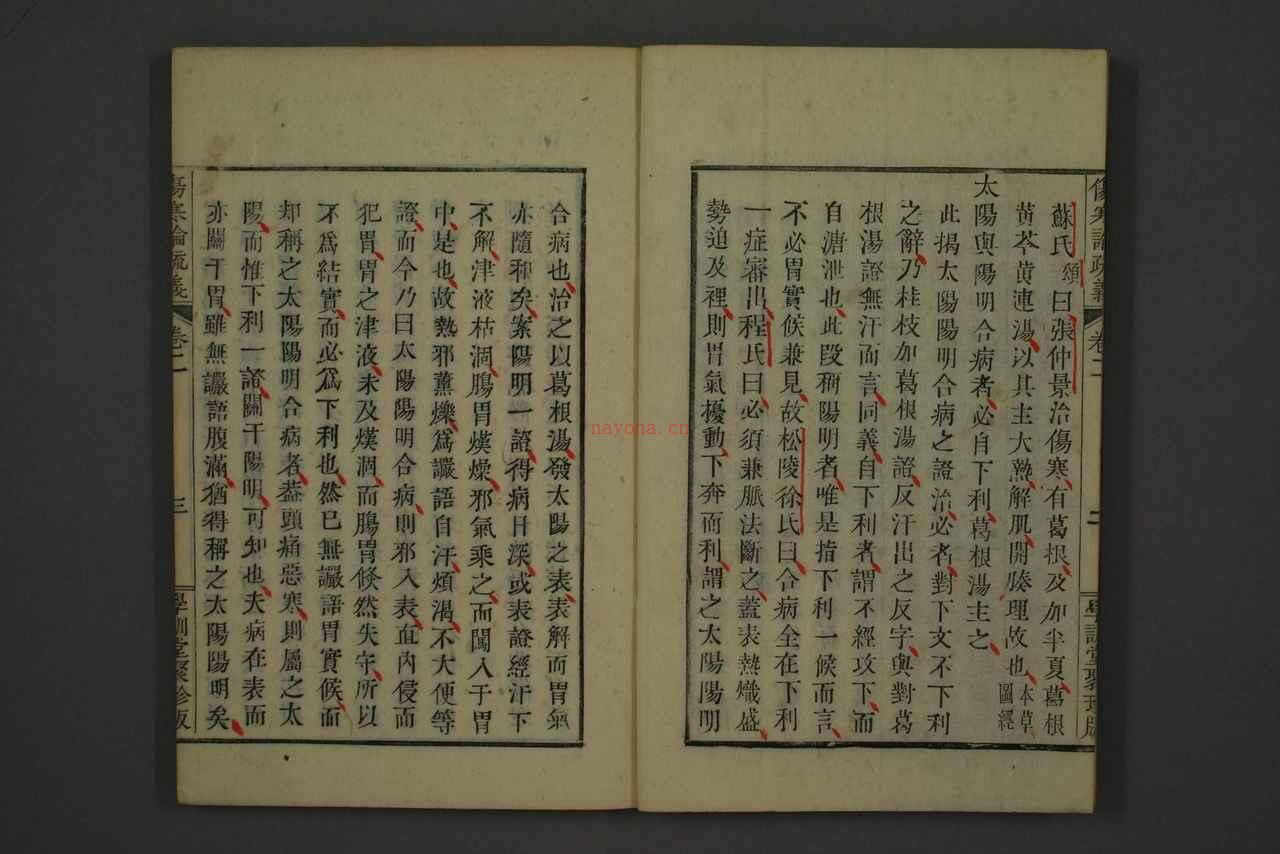 傷寒論疏義 卷二 二 學訓堂聚珍版
蘇氏頌曰張仲景治傷寒有葛根及加半夏葛根
黄芩黄連湯以其主大熱解肌開腠理故也本草圖經
太陽與陽明合病者必自下利葛根湯主之
此揭太陽陽明合病之證治必者對下文不下利
之辭乃桂枝加葛根湯證反汗出之反字與對葛
根湯證無汗而言同義自下利者謂不經攻下而
自溏泄也此段稱陽明者唯是指下利一候而言
不必胃實候兼見故松陵徐氏曰合病全在下利
一症審出程氏曰必須兼脈法斷之蓋表熱熾盛
勢迫及裡則胃氣擾動下奔而利謂之太陽陽明
合病也治之以葛根湯發太陽之表表解而胃氣
亦隨和矣案陽明一證得病日深或表證經汗下
不解津液枯涸腸胃熯燥邪氣乘之而闖入于胃
中是也故熱邪薰爍爲讝語自汗煩渴不大便等
證而今乃曰太陽陽明合病則邪入表直內侵而
犯胃胃之津液未及熯涸而腸胃倏然失守所以
不爲結實而必爲下利也然已無讝語胃實候而
却稱之太陽陽明合病者葢頭痛惡寒則屬之太
陽而惟下利一證關干陽明可知也夫病在表而
亦關干胃雖無讝語腹滿猶得稱之太陽陽明矣
傷寒論疏義 卷二 三 學訓堂聚珍版
nayona.cn